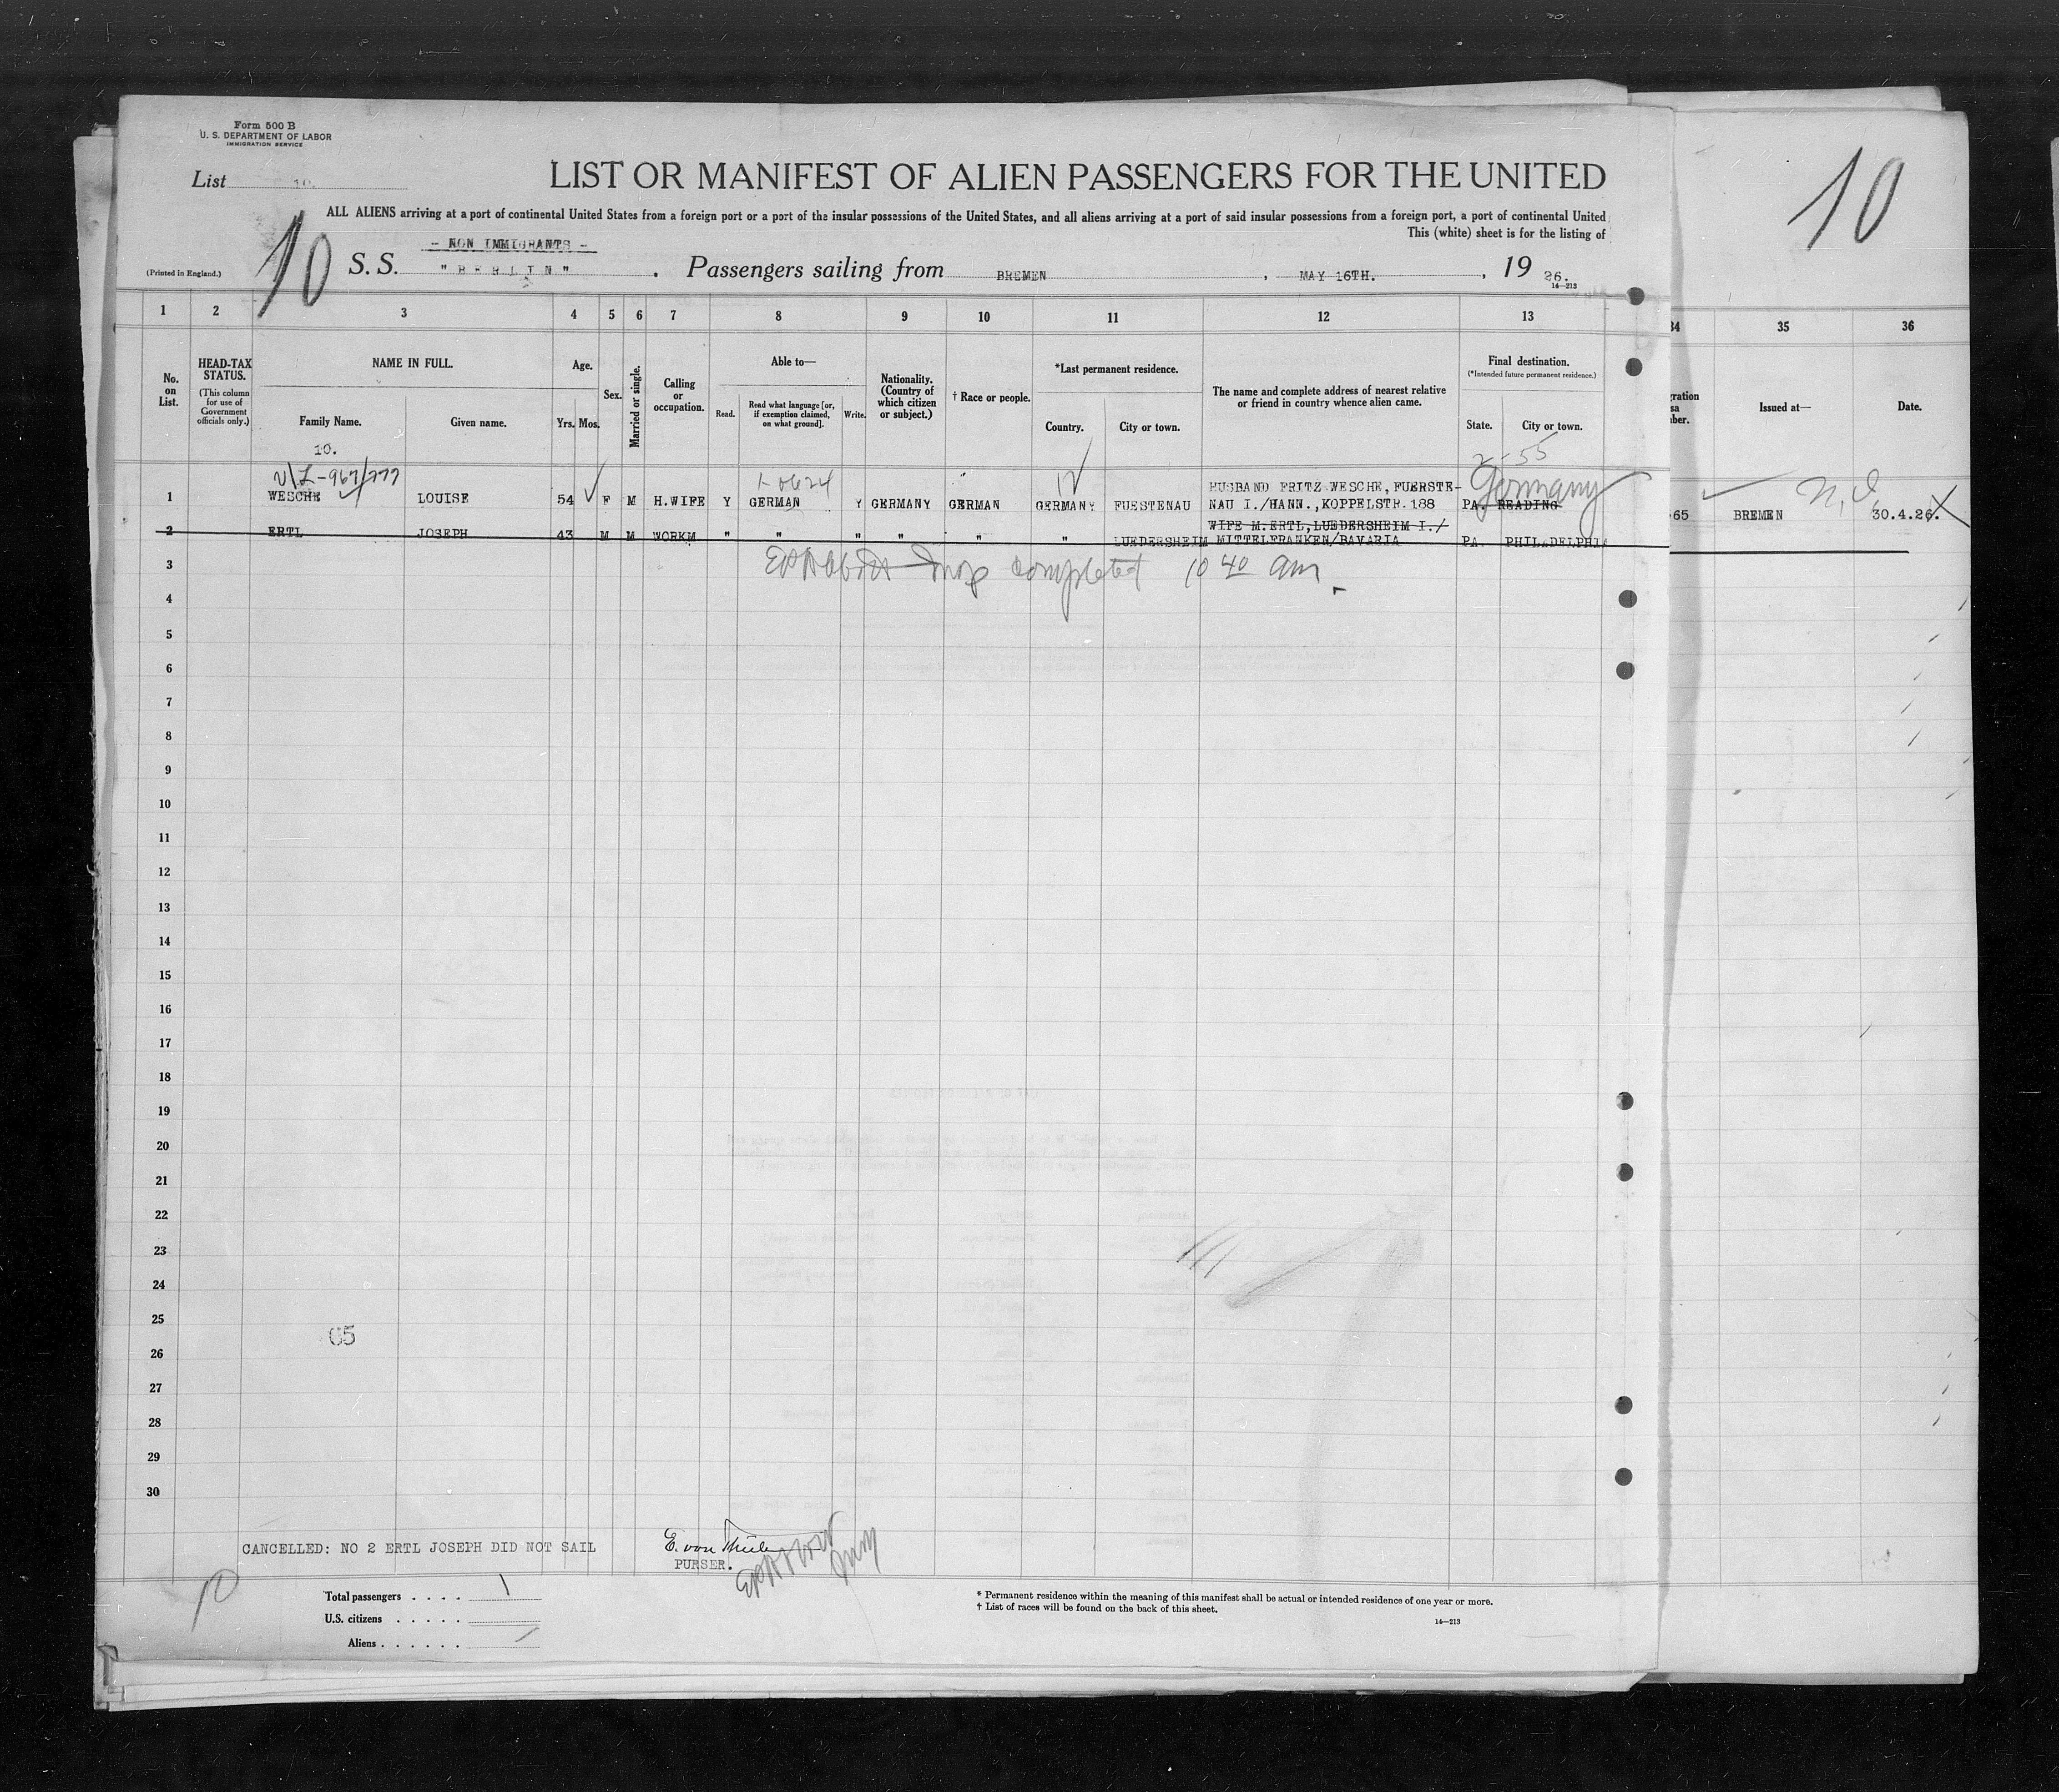 Form 500 B
U. S. DEPARTMENT OF LABOR
IMMIGRATION SERVICE
List 10.
LIST OR MANIFEST OF ALIEN PASSENGERS FOR THE UNITED
10
ALL ALIENS arriving at a port of continental United States from a foreign port or a port of the insular possessions of the United States, and all aliens arriving at a port of said insular possessions from a foreign port, a port of continental United
This (white) sheet is for the listing of
- NON IMMIGRANTS -
(Printed in England.)
10
S. S. "BERLIN". Passengers sailing from BREMEN, MAY 16TH., 19 26.
14—213
1 2 3 4 5 6 7 8 9 10 11 12 13 34 35 36
No. on List.
HEAD-TAX STATUS.
(This column for use of Government officials only.)
NAME IN FULL.
Family Name.
Given name.
Age.
Yrs. Mos.
Sex.
Married or single.
Calling or occupation.
Able to—
Read.
Read what language [or, if exemption claimed, on what ground].
Write.
Nationality. (Country of which citizen or subject.)
† Race or people.
*Last permanent residence.
Country.
City or town.
The name and complete address of nearest relative or friend in country whence alien came.
Final destination.
(*Intended future permanent residence.)
State.
City or town.
gration
sa
ber.
Issued at—
Date.
10.
2-55
1 WESCHE LOUISE 54 F M H.WIFE Y GERMAN Y GERMANY GERMAN GERMANY FUESTENAU HUSBAND FRITZ WESCHE, FUERSTE-
NAU I./HANN., KOPPELSTR.188 PA. READING Germany 65 BREMEN 30.4.26.
2 ERTL JOSEPH 43 M M WORKM " " " " " " LUEDERSHEIM WIFE M.ERTL, LUEDERSHEIM I./
MITTELFRANKEN/BAVARIA PA. PHILADELPHIA
completed 10 40 am
3
4
5
6
7
8
9
10
11
12
13
14
15
16
17
18
19
20
21
22
23
24
25
65
26
27
28
29
30
CANCELLED: NO 2 ERTL JOSEPH DID NOT SAIL
E. von
PURSER.
10
Total passengers . . . . 1
U.S. citizens . . . . .
Aliens . . . . . . 1
* Permanent residence within the meaning of this manifest shall be actual or intended residence of one year or more.
† List of races will be found on the back of this sheet.
14—213